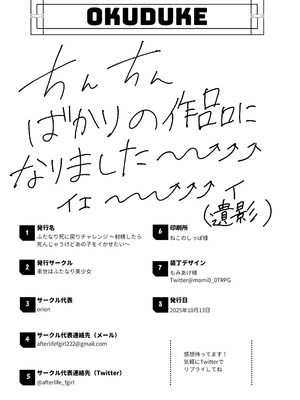 OKUDUKE
ちんちん
ばかりの作品に
なりました〜〜⤴⤴⤴
イエ〜〜⤴⤴⤴イ
(遺影)
1 発行名
ふたなり死に戻りチャレンジ〜射精したら
死んじゃうけどあの子をイかせたい〜
2 発行サークル
来世はふたなり美少女
3 サークル代表
orion
4 サークル代表連絡先(メール)
afterlifefgirl222@gmail.com
5 サークル代表連絡先(Twitter)
@afterlife_fgirl
6 印刷所
ねこのしっぽ様
7 装丁デザイン
もみあげ様
Twitter@momi0_0TRPG
8 発行日
2025年10月13日
感想待ってます!
気軽にTwitterで
リプライしてね